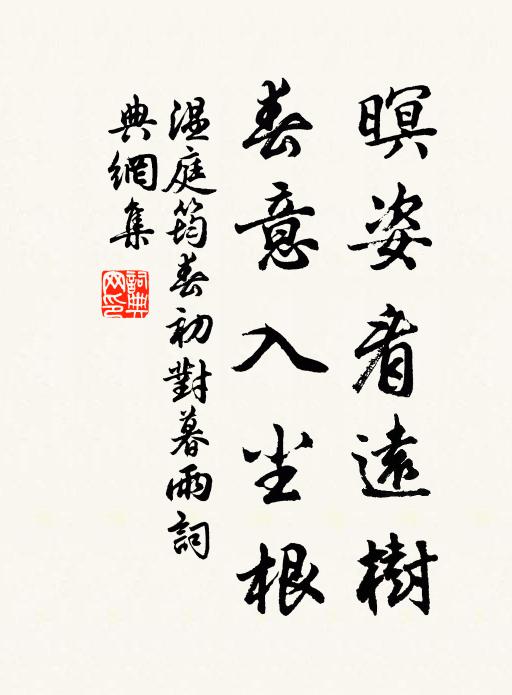 暝姿看遠樹
春意入尘根
温庭筠春初對暮雨詞
典網集
詞典网印